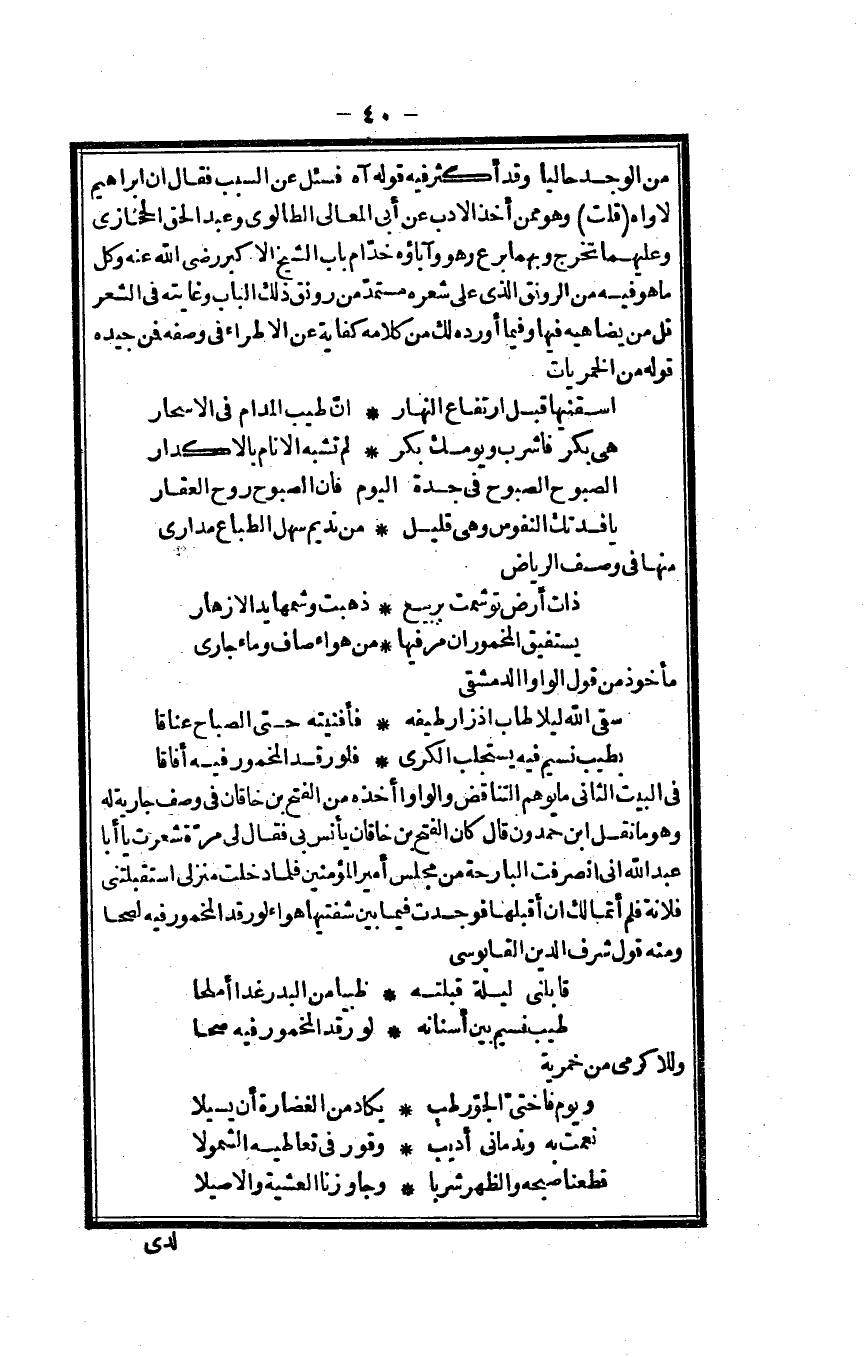 - ٤٠ -
من الوجد حاليا وقد أكثر فيه قوله آه فسئل عن السبب فقال ان ابراهيم
لاواه (قلت) وهو ممن أخذ الادب عن أبى المعالى الطالوى وعبد الحق الحجازى
وعليهما تخرج وبهما برع وهو وآباؤه خدّام باب الشيخ الاكبر رضى الله عنه وكل
ما هو فيه من الرونق الذى على شعره مستمدّ من رونق ذلك الباب وغايته فى الشعر
قل من يضاهيه فيها وفيما أورده لك من كلامه كفاية عن الاطراء فى وصفه فمن جيده
قوله من الخمريات
اسقنيها قبل ارتفاع النهار * انّ طيب المدام فى الاسحار
هى بكر فاشرب ويومك بكر * لم تشبه الانام بالاكدار
الصبوح الصبوح فى جدة اليوم فان الصبوح روح العقار
يا فدتك النفوس وهى قليل * من نديم سهل الطباع مدارى
منها فى وصف الرياض
ذات أرض توشمت بربيع * ذهبت وشمها يد الازهار
يستفيق المخمور ان مر فيها * من هواء صاف وماء جارى
مأخوذ من قول الواوا الدمشقى
سقى الله ليلا طاب اذ زار طيفه * فأفنيته حتى الصباح عناقا
بطيب نسيم فيه يستجلب الكرى * فلو رقد المخمور فيه أفاقا
فى البيت الثانى ما يوهم التناقض والواوا أخذه من الفتح بن خاقان فى وصف جارية له
وهو ما نقل ابن حمدون قال كان الفتح بن خاقان يأنس بى فقال لى مرّة شعرت يا أبا
عبد الله انى انصرفت البارحة من مجلس أمير المؤمنين فلما دخلت منزلى استقبلتنى
فلانة فلم أتمالك ان أقبلها فوجدت فيما بين شفتيها هواء لو رقد المخمور فيه لصحا
ومنه قول شرف الدين القابوسى
قابلنى ليلة قبلته * ظبيا من البدر غدا أملحا
طيب نسيم بين أسنانه * لو رقد المخمور فيه صحا
وللاكرمى من خمرية
ويوم فاختىّ الجوّ رطب * يكاد من الغضارة أن يسيلا
نعمت به وندمانى أديب * وقور فى تعاطيه الشمولا
قطعنا صبحه والظهر شربا * وجاوزنا العشية والاصيلا
لدى